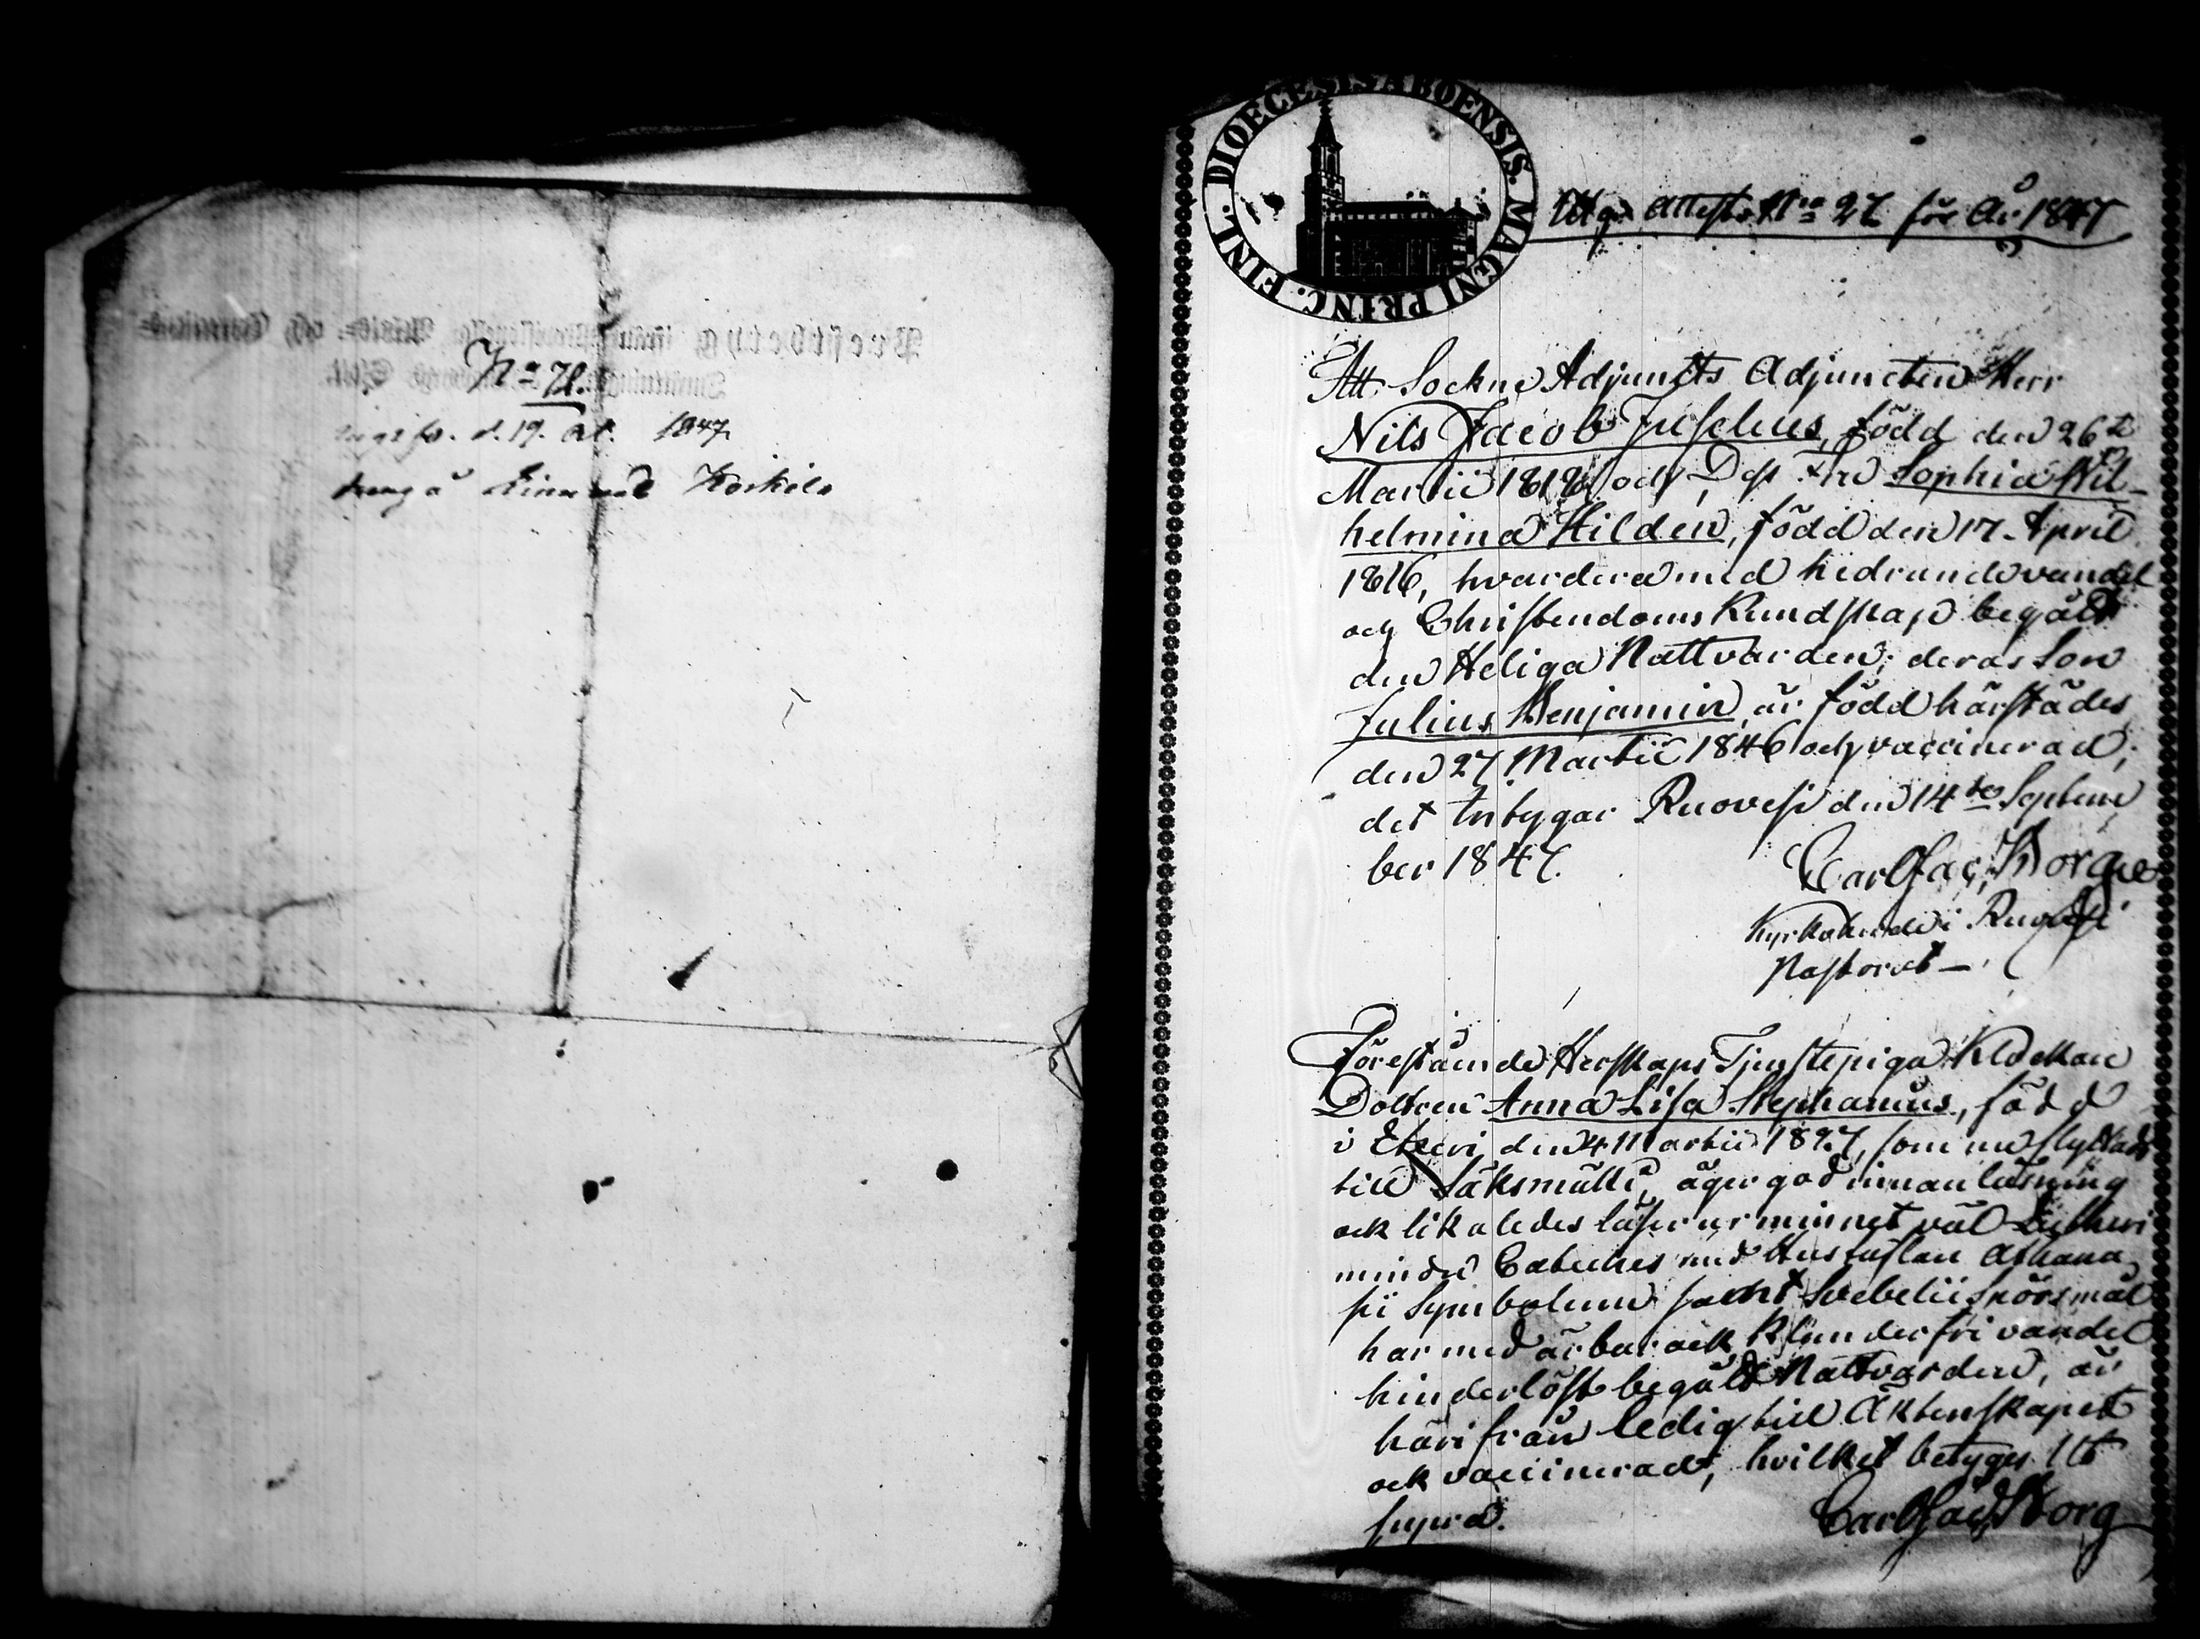 No 71.
d. 19. Oct. 1847
DIOECESIS ABOENSIS. MAGNI PRINC. FINL.
Utg. attest No 27 för År 1847
Att Sockne Adjuncts Adjuncten Herr
Nils Jacob Juselius, född den 26te
Martii 1818 och Dess Fru Sophia Wil-
helmina Hilden, född den 17. April
1816, hvardera med hedrande vandel
och Christendoms Kundskap begått
den Heliga Nattvarden; deras Son
Julius Benjamin, är född härstädes
den 27 Martii 1846 och vaccinerad;
det intygar Ruovesi den 14de Septem
ber 1847.
Carl Jac. Borg
Kyrkoherde i Ruovesi
Pastorat
Förestående Herskaps Tjenstepiga Klockare
Dottren Anna Lisa Stephanius, född
i Etseri den 4 Martii 1827, som nu flyttade
till Säksmäki, äger god innanläsning
ock likaledes läser ur minnet väl Lutheri
mindre Cateches med Hustaflan Athana
sii Symbolum samt Svebelii Spörsmål
har med ärbar ock klanderfri vandel
hinderlöst begått Nattvarden, är
härifrån ledig till Äktenskapet
ock vaccinerad, hvilket betyges Ut
supra.
Carl Jac. Borg